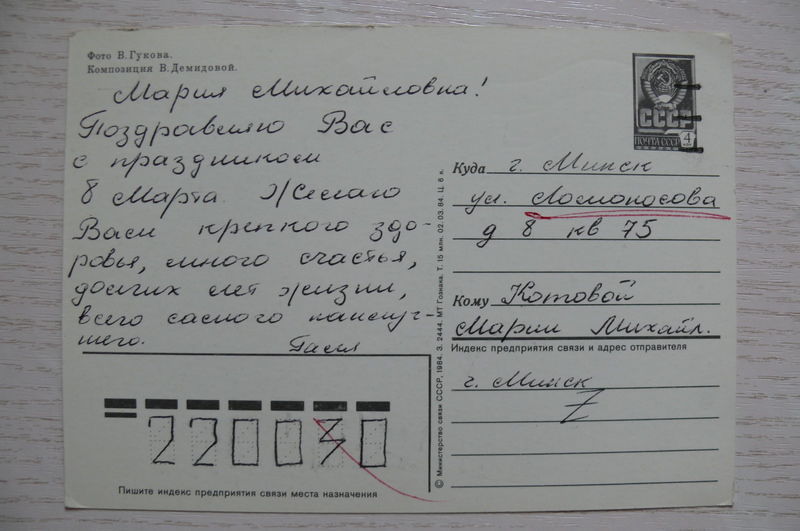 Фото В. Гукова.
Композиция В. Демидовой.
Мария Михайловна!
Поздравляю Вас
с праздником
8 Марта. Желаю
Вам крепкого здо-
ровья, много счастья,
долгих лет жизни,
всего самого наилуч-
шего.
СССР
ПОЧТА СССР
4
Куда г. Минск
ул. Ломоносова
д 8 кв 75
Кому Котовой
Марии Михайл.
Индекс предприятия связи и адрес отправителя
г. Минск
220030
Пишите индекс предприятия связи места назначения
© Министерство связи СССР, 1984. З. 2444. МТ Гознака. Т. 15 млн. 02.03.84. Ц. 6 к.